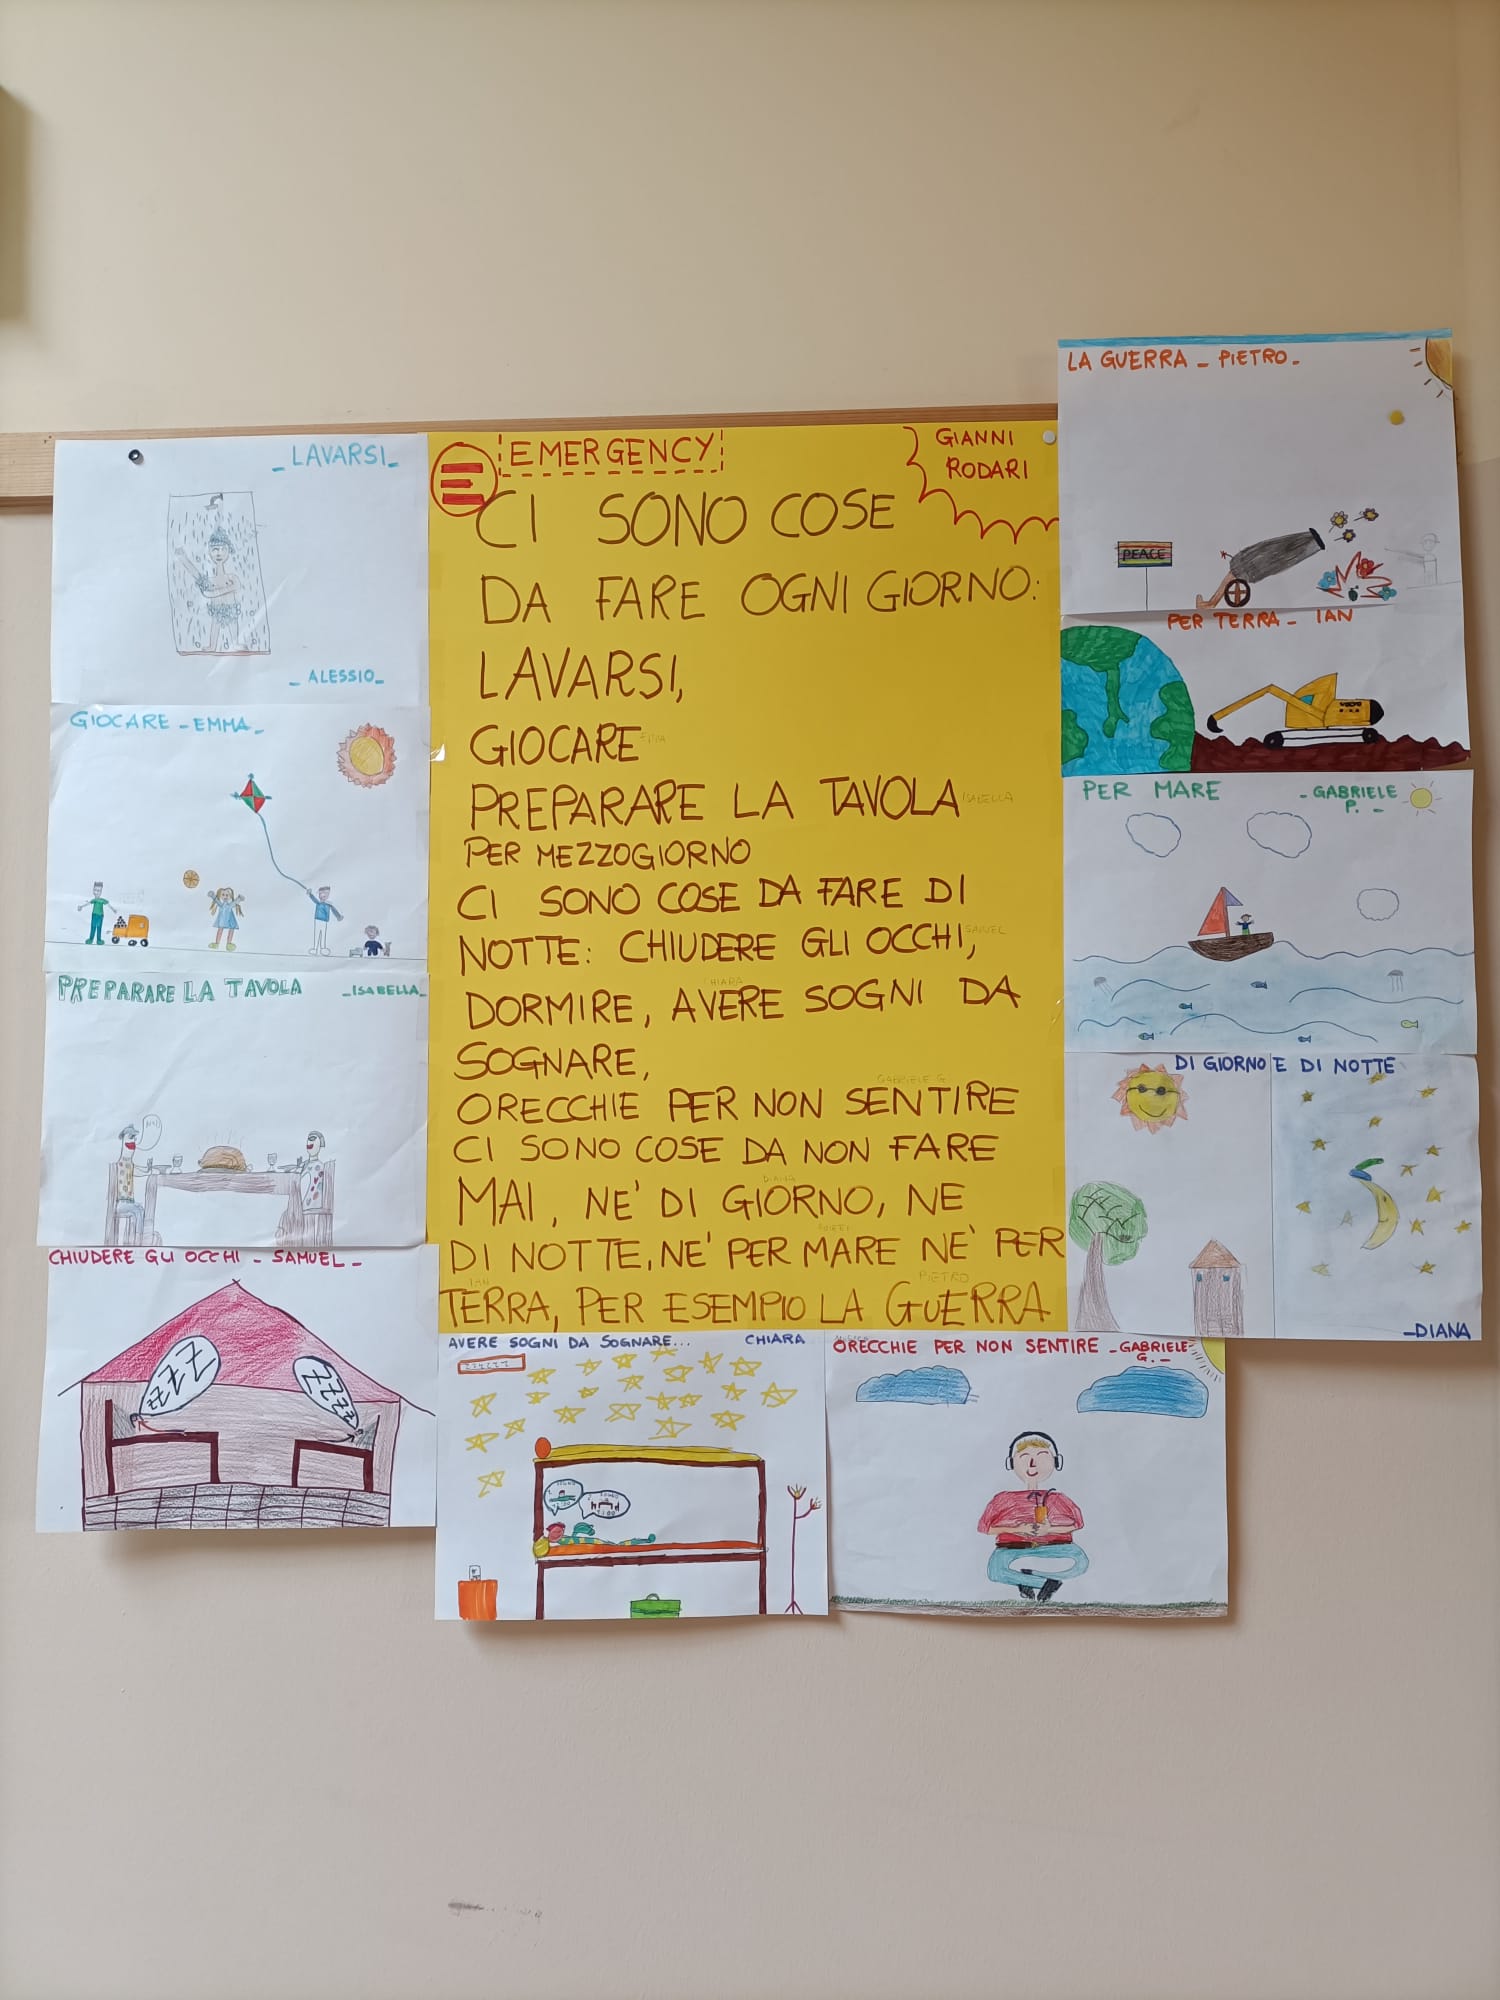 _ LAVARSI _
_ ALESSIO _
GIOCARE - EMMA -
PREPARARE LA TAVOLA
- ISABELLA -
CHIUDERE GLI OCCHI - SAMUEL -
EMERGENCY
GIANNI
RODARI
CI SONO COSE
DA FARE OGNI GIORNO:
LAVARSI,
GIOCARE
PREPARARE LA TAVOLA
ISABELLA
PER MEZZOGIORNO
CI SONO COSE DA FARE DI
SAMUEL
NOTTE: CHIUDERE GLI OCCHI,
CHIARA
DORMIRE, AVERE SOGNI DA
SOGNARE,
GABRIELE G.
ORECCHIE PER NON SENTIRE
CI SONO COSE DA NON FARE
DIANA
MAI, NE' DI GIORNO, NE
DI NOTTE, NE' PER MARE NE' PER
IAN
PIETRO
TERRA, PER ESEMPIO LA GUERRA
AVERE SOGNI DA SOGNARE... CHIARA
ORECCHIE PER NON SENTIRE - GABRIELE
G. -
LA GUERRA - PIETRO -
PEACE
PER TERRA - IAN
PER MARE
- GABRIELE
P. -
DI GIORNO E DI NOTTE
- DIANA